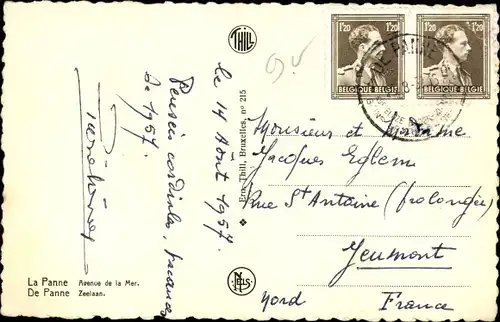 THILL
1'20 1'20
BELGIQUE-BELGIË BELGIQUE-BELGIË
DE PANNE
le 14 Août 1957.
Pensées cordiales,
de 1957.
Ern. Thill, Bruxelles, n° 215
Monsieur et Madame
Jacques Eglem
rue St Antoine (prolongée)
Jeumont
Nord France
NELS
La Panne Avenue de la Mer.
De Panne Zeelaan.